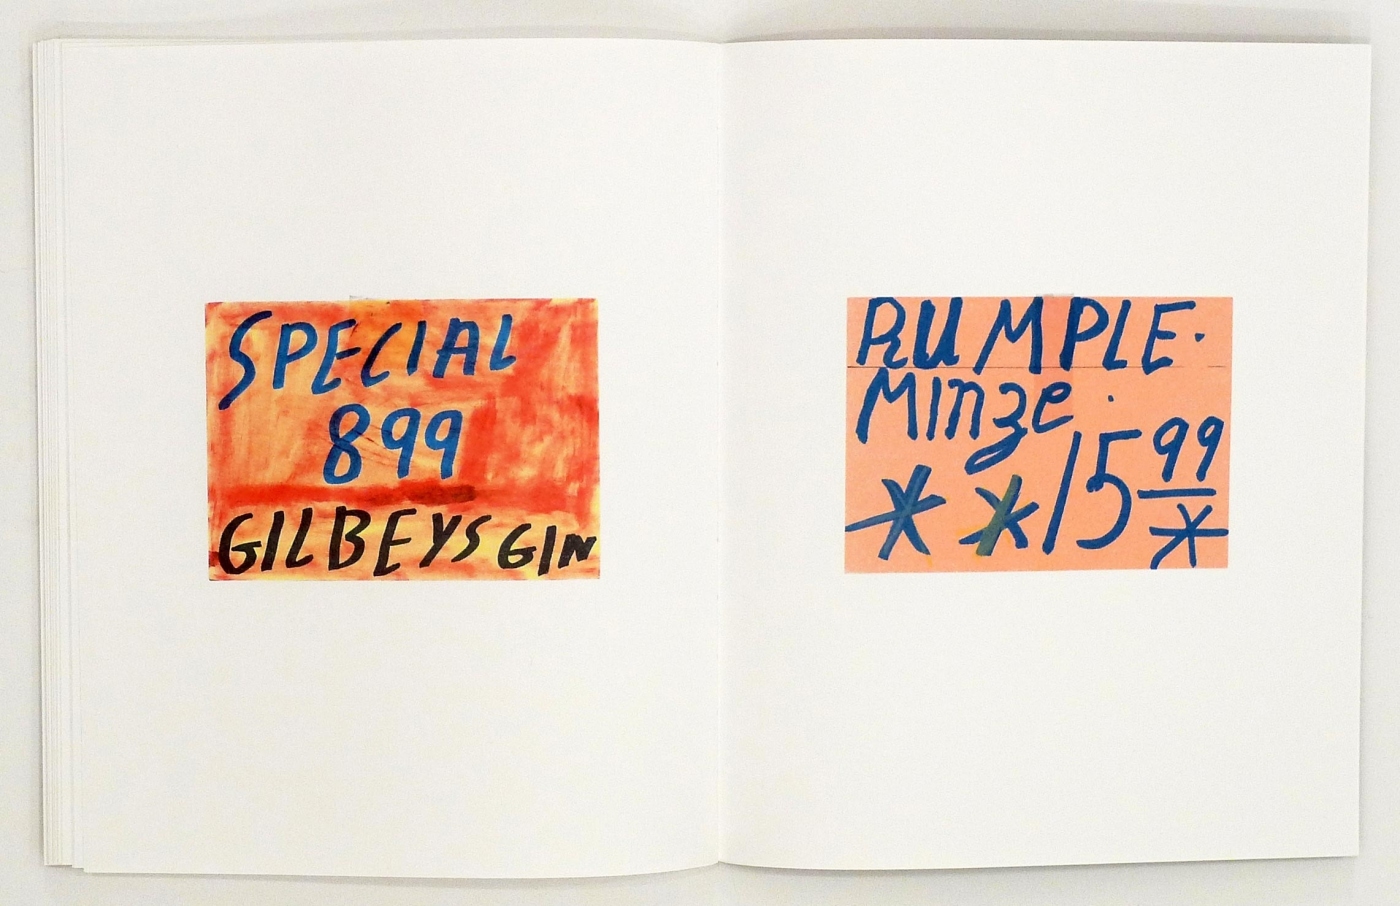 SPECIAL
899
GILBEYS GIN
RUMPLE.
Minze.
* * 15 99
*